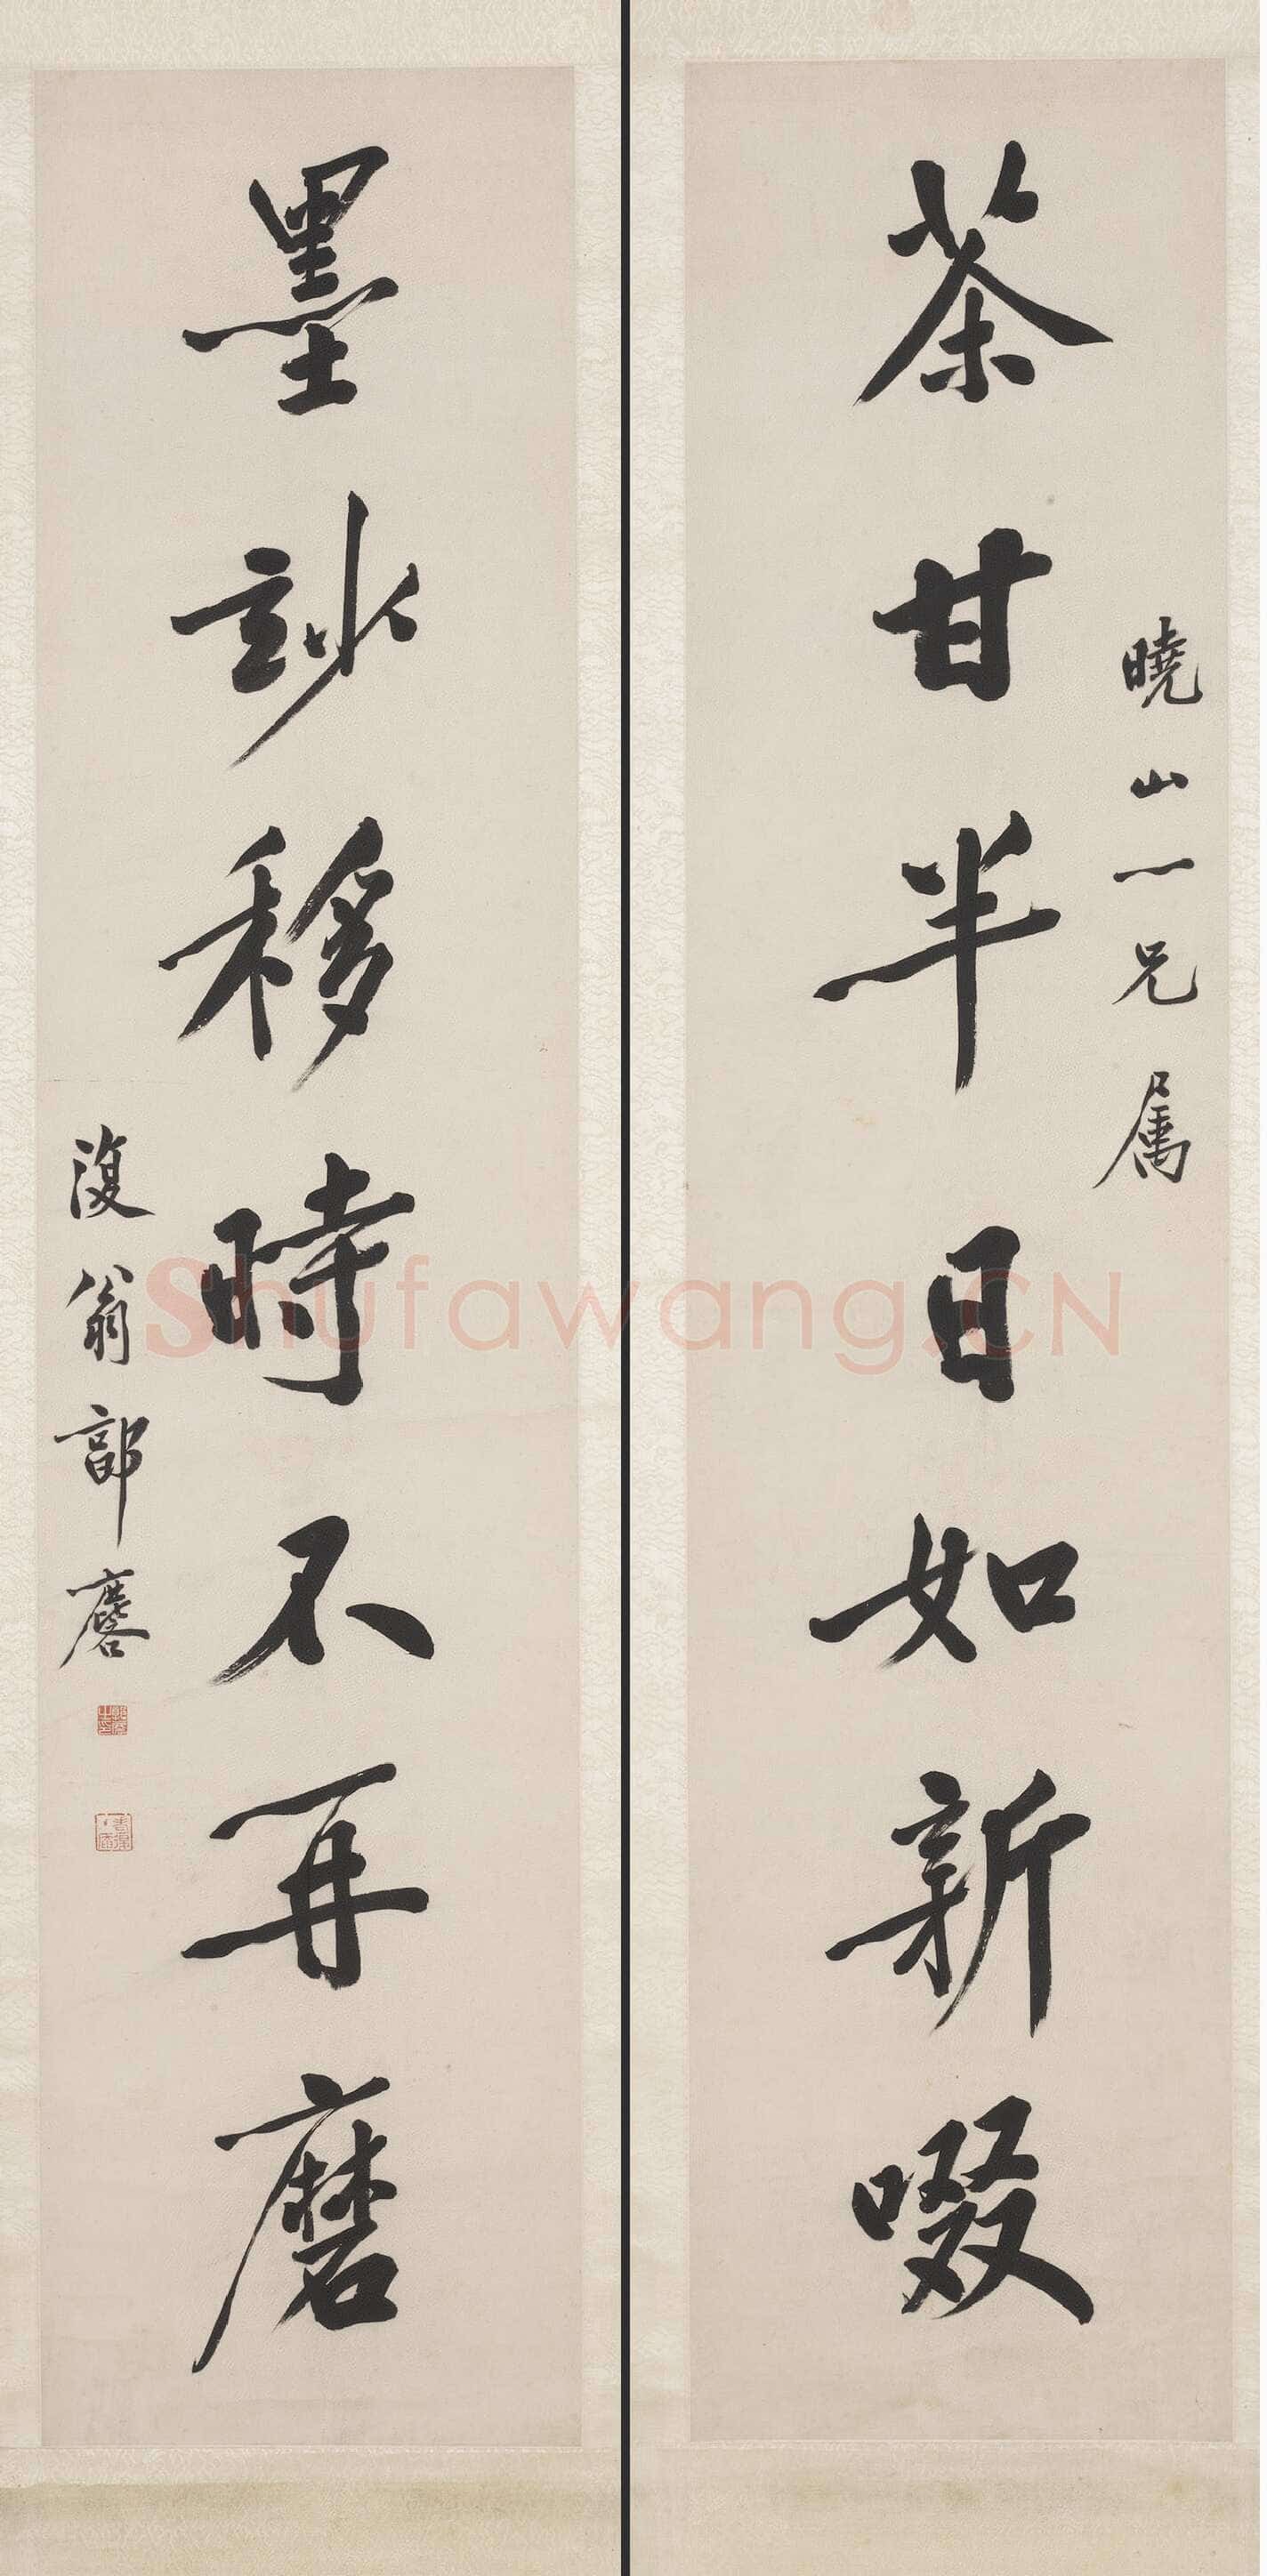 曉山一兄属
茶甘半日如新啜
墨玅移時不再磨
復翁郭麐
Shufawang.CN